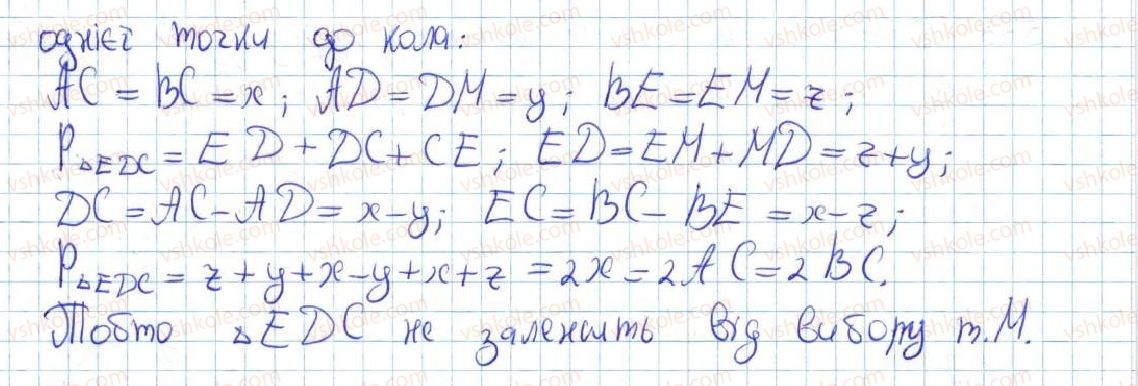 однієї точки до кола:
AC = BC = x; AD = DM = y; BE = EM = z;
P△EDC = ED + DC + CE; ED = EM + MD = z + y;
DC = AC - AD = x - y; EC = BC - BE = x - z;
P△EDC = z + y + x - y + x + z = 2x = 2AC = 2BC.
Тобто △EDC не залежить від вибору т. M.